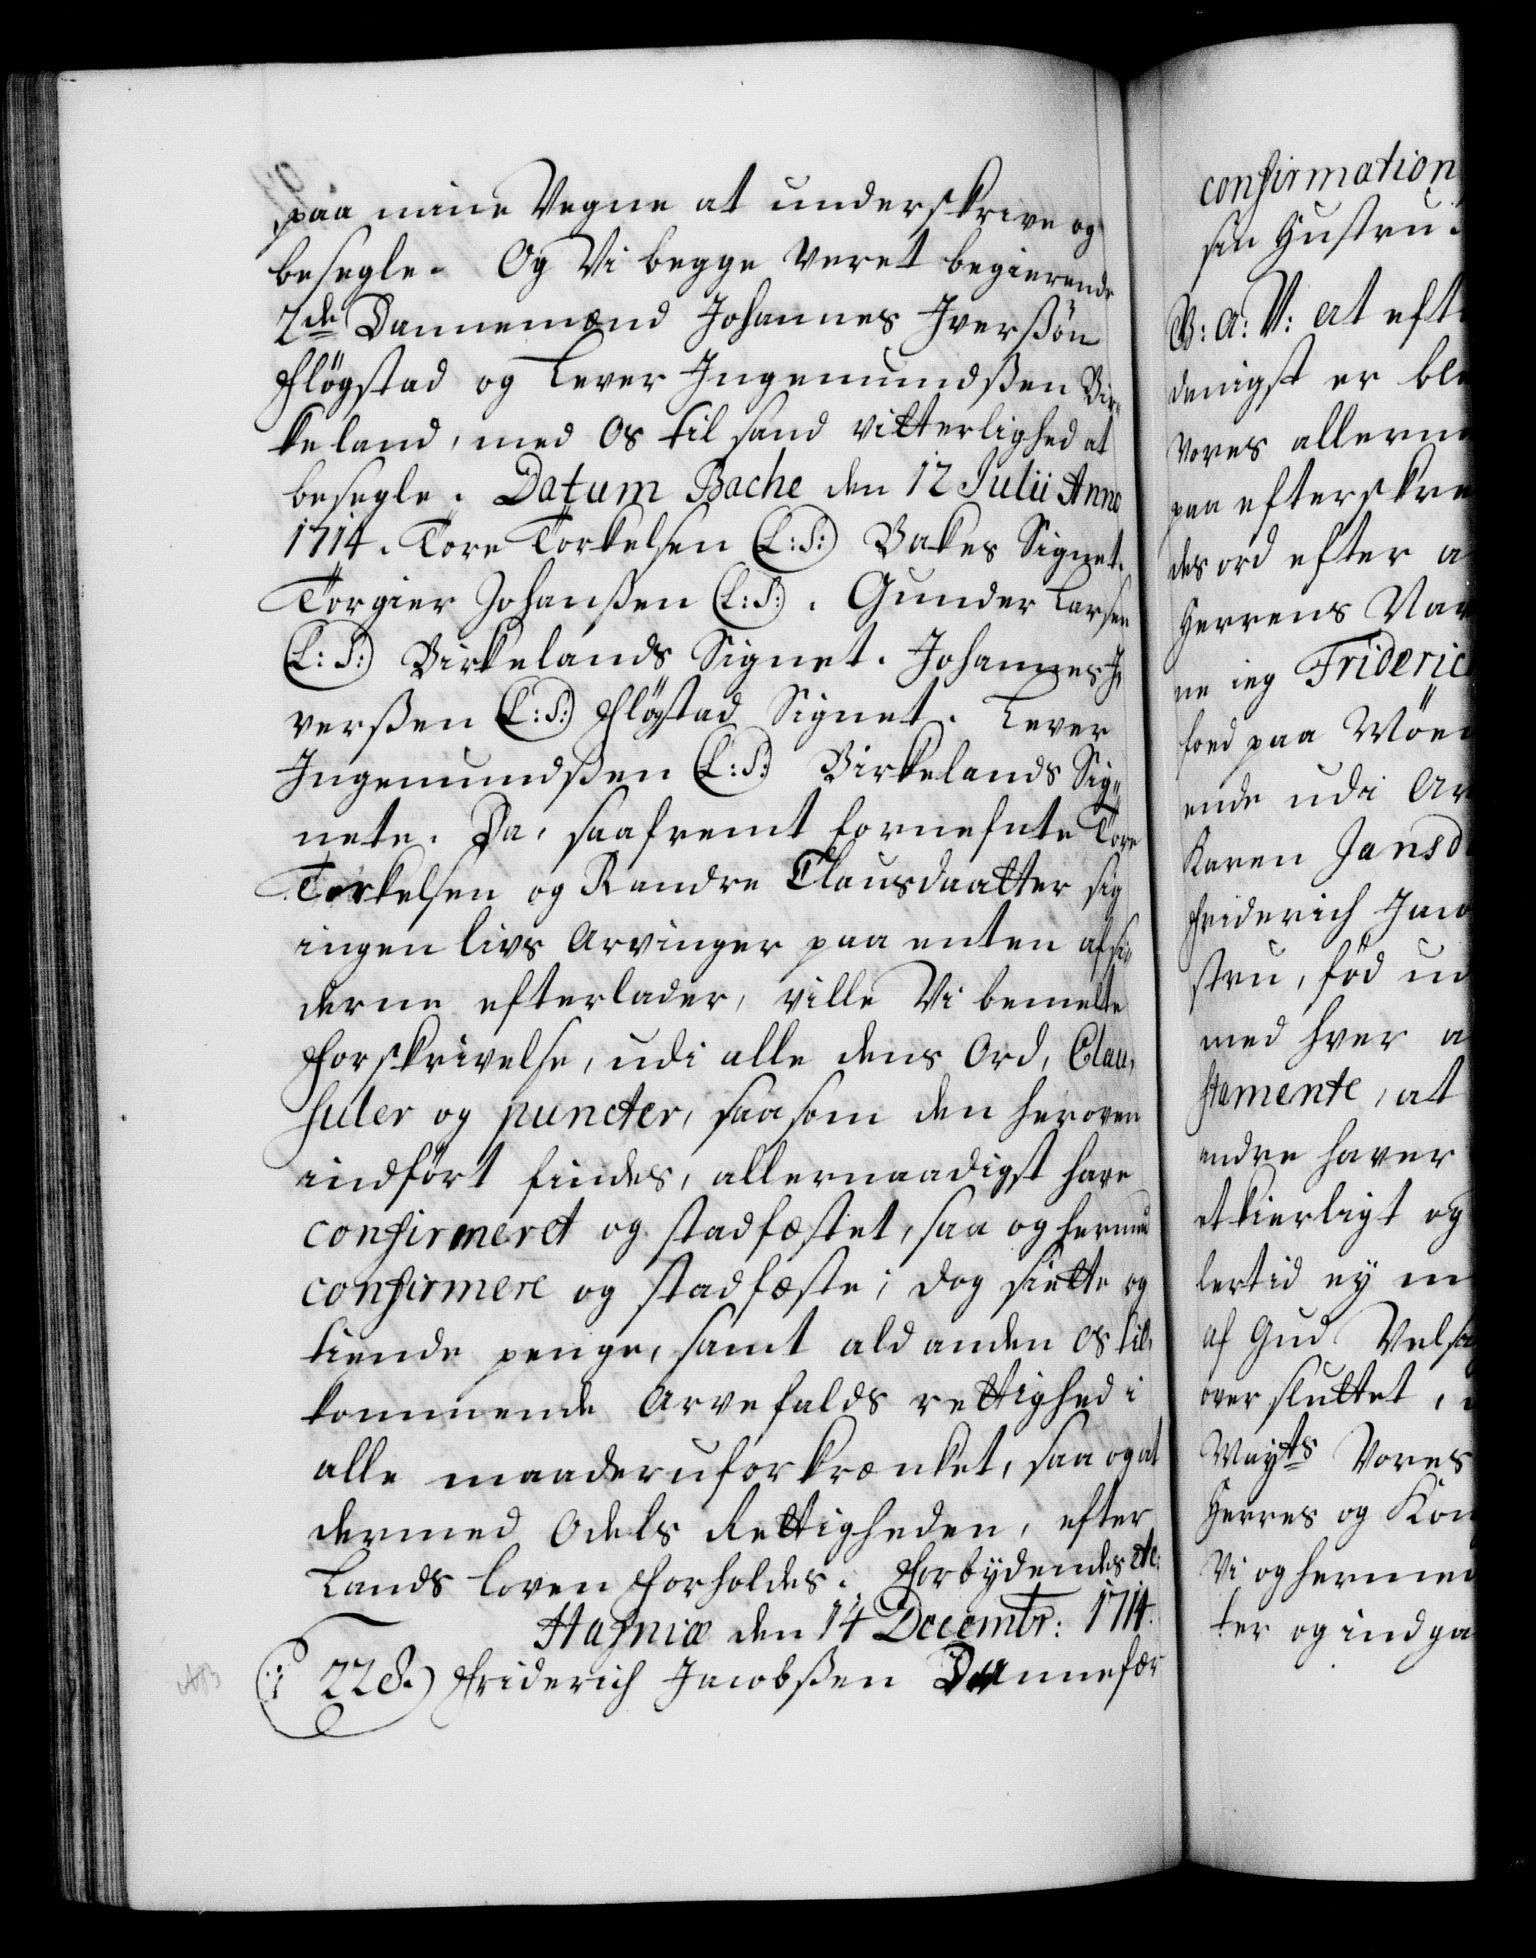 paa mine Vegne at underskrive og
besegle. Og Vi begge veret begierende
2de Dannemænd Johannes Iverßön
Flögstad og Lever Ingemundßen Bir-
keland, med Os til sand vitterlighed at
besegle. Datum Bache den 12 Julii Anno
1714. Tore Torkelsen (L:S:) Bakes Signet.
Torgier Johanßen (L:S:). Gunder Larsen
(L:S:) Birkelands Signet. Johannes I-
verßen (L:S:) Flögstad Signet. Lever
Ingemundßen (L:S:) Birkelands Sig-
nete. Da, saafremt fornefnte Tore
Torkelsen og Randre Clausdaatter sig
ingen livs Arvinger paa enten af si-
derne efterlader, ville Vi bemelte
Forskrivelse, udi alle dens Ord, Clau-
suler og puncter, saasom den heroven
indfört findes, allernaadigst have
confirmeret og stadfæstet, saa og hermed
confirmere og stadfæste; dog siette og
tiende penge, samt ald anden Os til-
kommende Arvefalds rettighed i
alle maader uforkrænket, saa og at
dermed Odels Rettigheden, efter
Lands loven forholdes. Forbydendes etc:
Hafniæ den 14 Decembr: 1714.
228.) Friderich Jacobßen Dannefær
confirmation
sin Hustru
V: A: V: At eft
denigst er ble
vores allern
paa efterskre
des ord efter a
Herrens Nav
ne ieg Frideric
foed paa Möen
ende udi Ar
Karen Jansd
Friderich Jaco
stru, föd ud
med hver a
stamente, at
andre haver
et kierligt og
lertid ey m
af Gud Velsi
over sluttet,
Mayts Vores
Herres og Kon
Vi og hermed
ter og indga